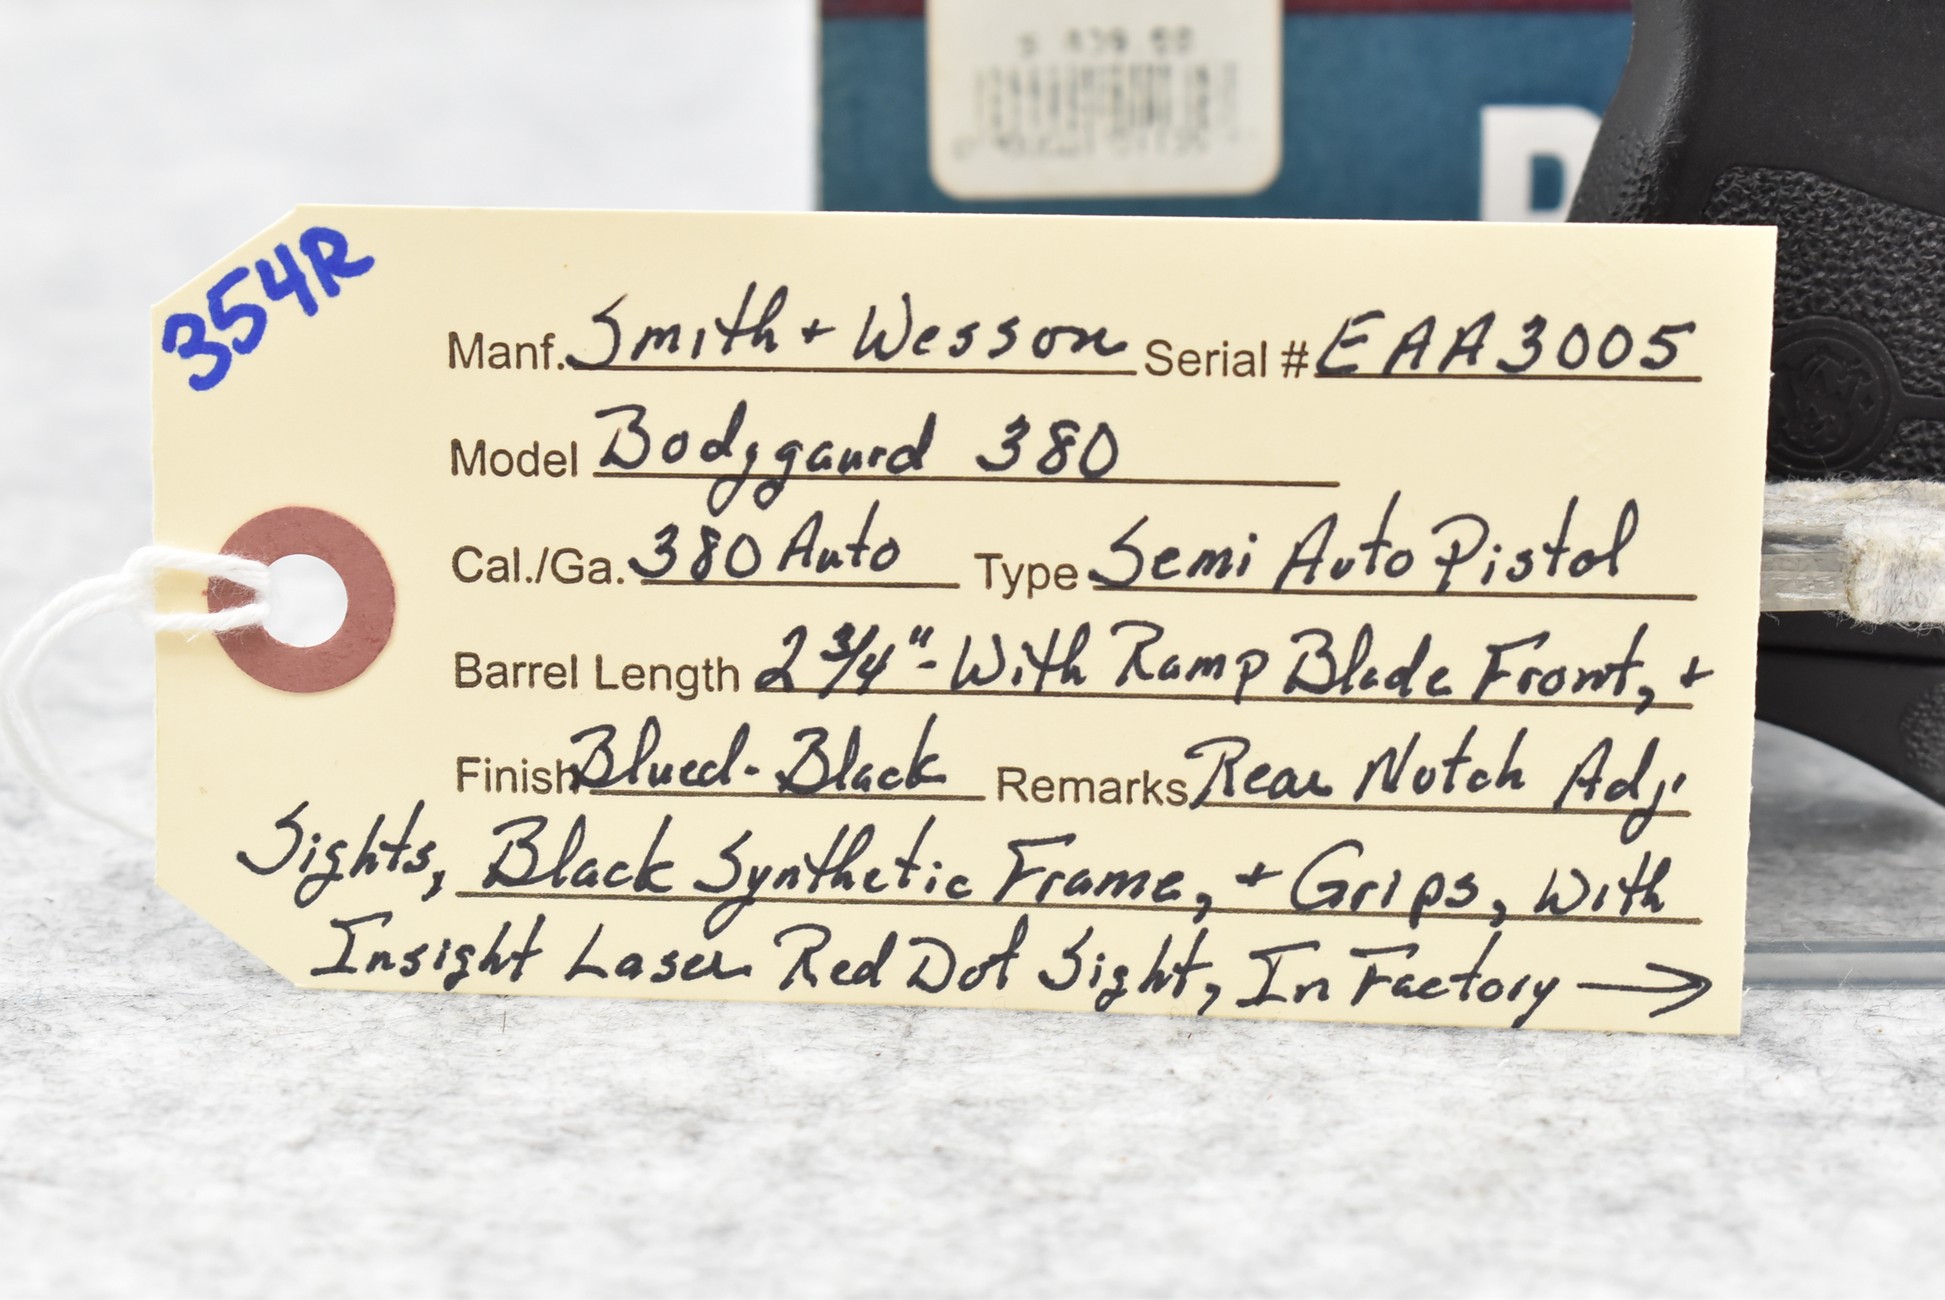 354R
Manf. Smith + Wesson Serial # EAA3005
Model Bodygaurd 380
Cal./Ga. 380 Auto Type Semi Auto Pistol
Barrel Length 2 3/4" - With Ramp Blade Front, +
Finish Blued - Black Remarks Rear Notch Adj.
Sights, Black Synthetic Frame, + Grips, With
Insight Laser Red Dot Sight, In Factory →